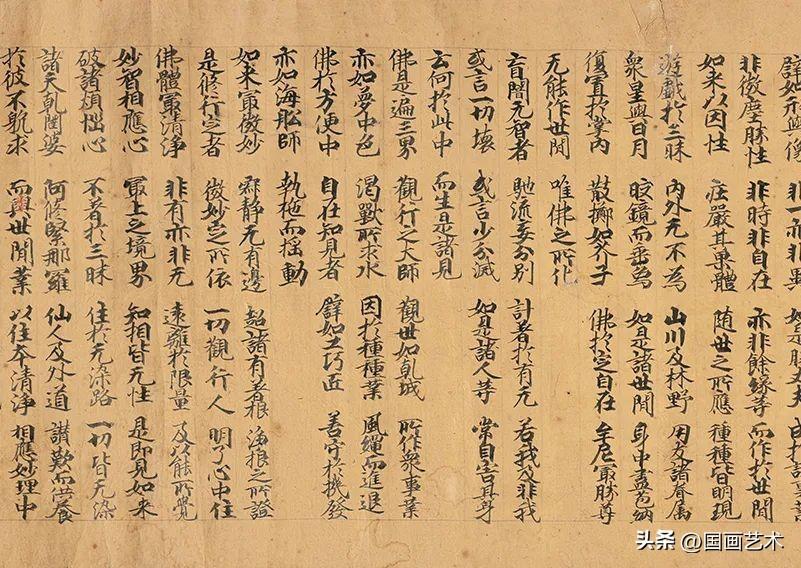 譬如形與像 非一亦非異 如是勝丈夫
非微塵勝性 非時非自在 亦非餘緣等 而作於世間
如來以因性 莊嚴其果體 隨世之所應 種種皆明現
遊戲於三昧 內外无不為 山川及林野 朋友諸眷屬
衆星與日月 皎鏡而垂為 如是諸世間 身中盡苞納
復置於掌內 散擲如芥子 佛於定自在 牟尼最勝尊
无能作世間 唯佛之所化
盲闇无智者 馳流妄分別 計著於有无 若我及非我
或言一切壞 或言少分滅 如是諸人等 常自害其身
云何於此中 而生是諸見
佛是遍三界 觀行之大師 觀世如乹城 所作衆事業
亦如夢中色 渴獸所求水 因於種種業 風繩而進退
佛於方便中 自在知見者 譬如工巧匠 善守於機發
亦如海舩師 執柂而搖動
如來最微妙 寂靜无有邊 諸有著根 之所證
是修行定者 微妙定所依 一切觀行人 明了心中住
佛體最清淨 非有亦非无 遠離於限量 及以能所覺
妙智相應心 最上之境界 知相皆无性 是即見如來
破諸煩惱心 不著於三昧 住於无染路 一切皆无染
諸天乹闥婆 阿修緊那羅 仙人及外道 讚歎而供養
於彼不躭求 而與世間業 以住本清淨 相應妙理中
头条 @国画艺术